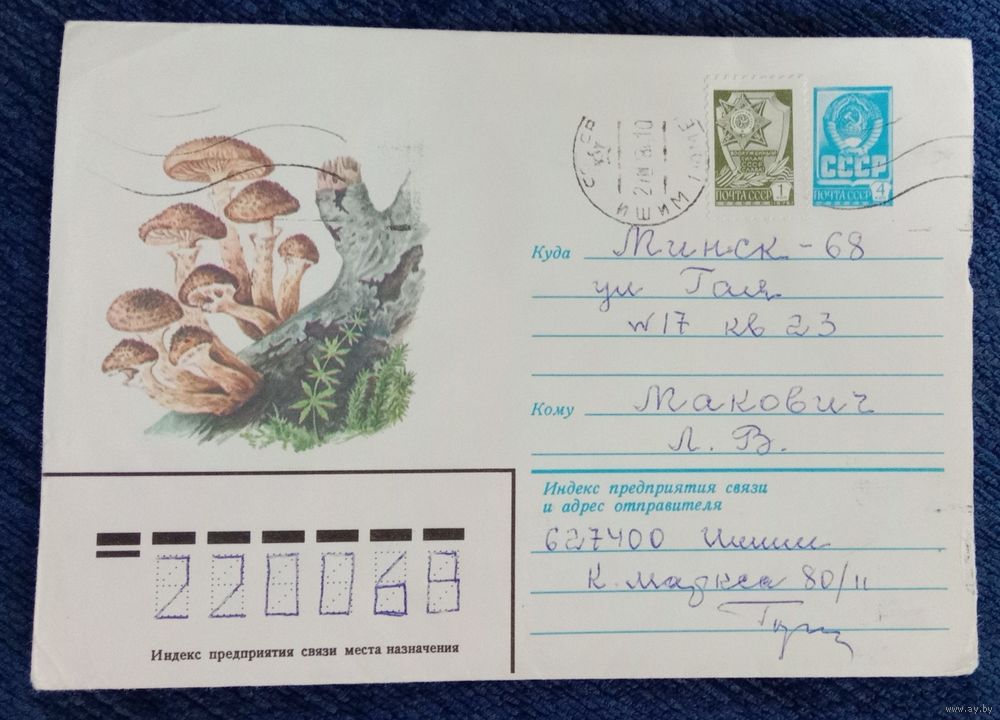 СССР
ИШИМ
ВООРУЖЕННЫМ
СИЛАМ
СССР
СЛАВА
ПОЧТА СССР 1
СССР
ПОЧТА СССР 4
Куда Минск-68
ул Гая
№17 кв 23
Кому Макович
Л. В.
Индекс предприятия связи
и адрес отправителя
627400 Ишим
К. Маркса 80/11
220068
Индекс предприятия связи места назначения
www.ay.by